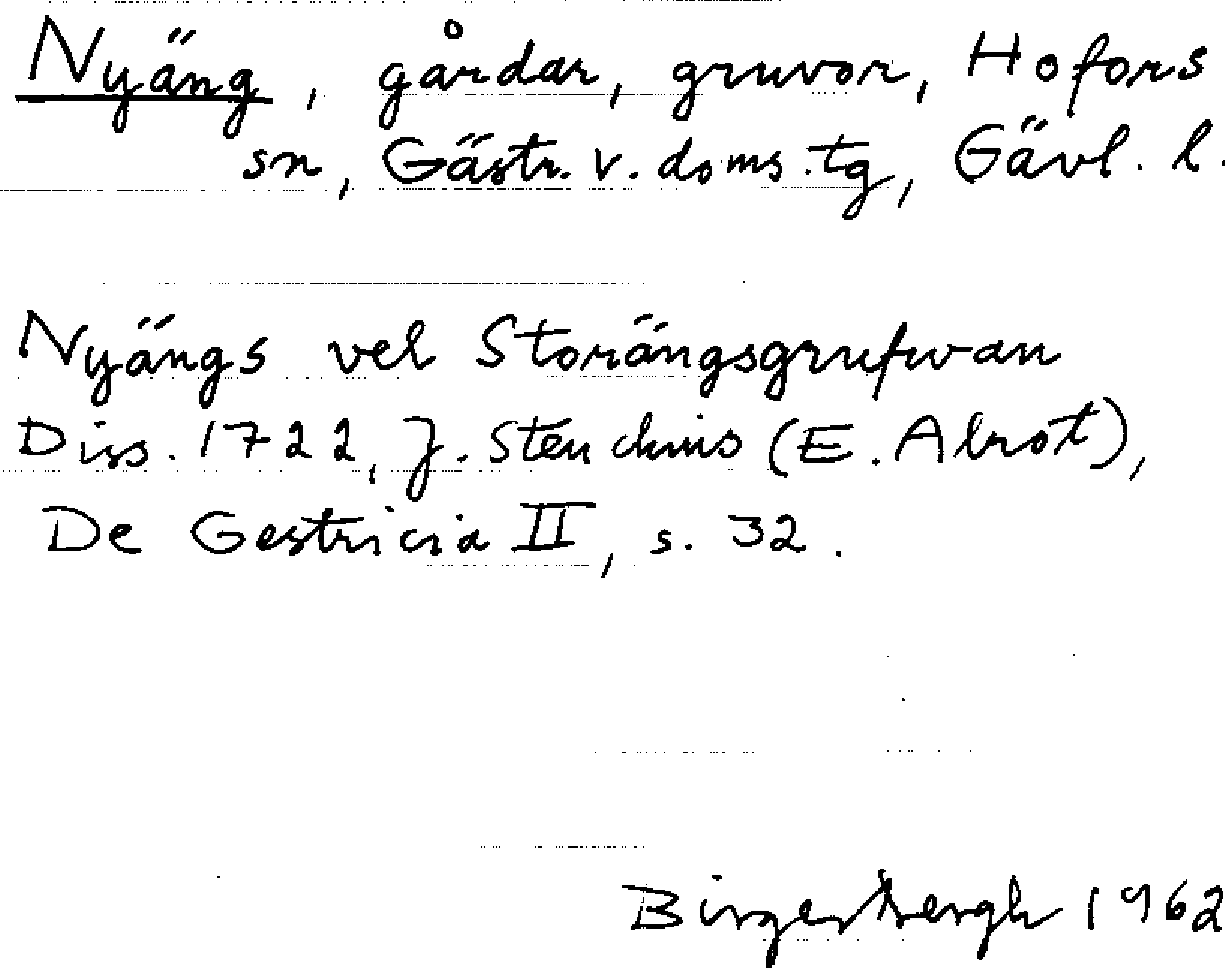 Nyäng, gårdar, gruvor, Hofors
sn, Gästr. v. doms.tg, Gävl. l.
Nyängs vel Storängsgrufwan
Diss. 1722, J. Steuchius (E. Alrot),
De Gestricia II, s. 32.
Birger Bergh 1962